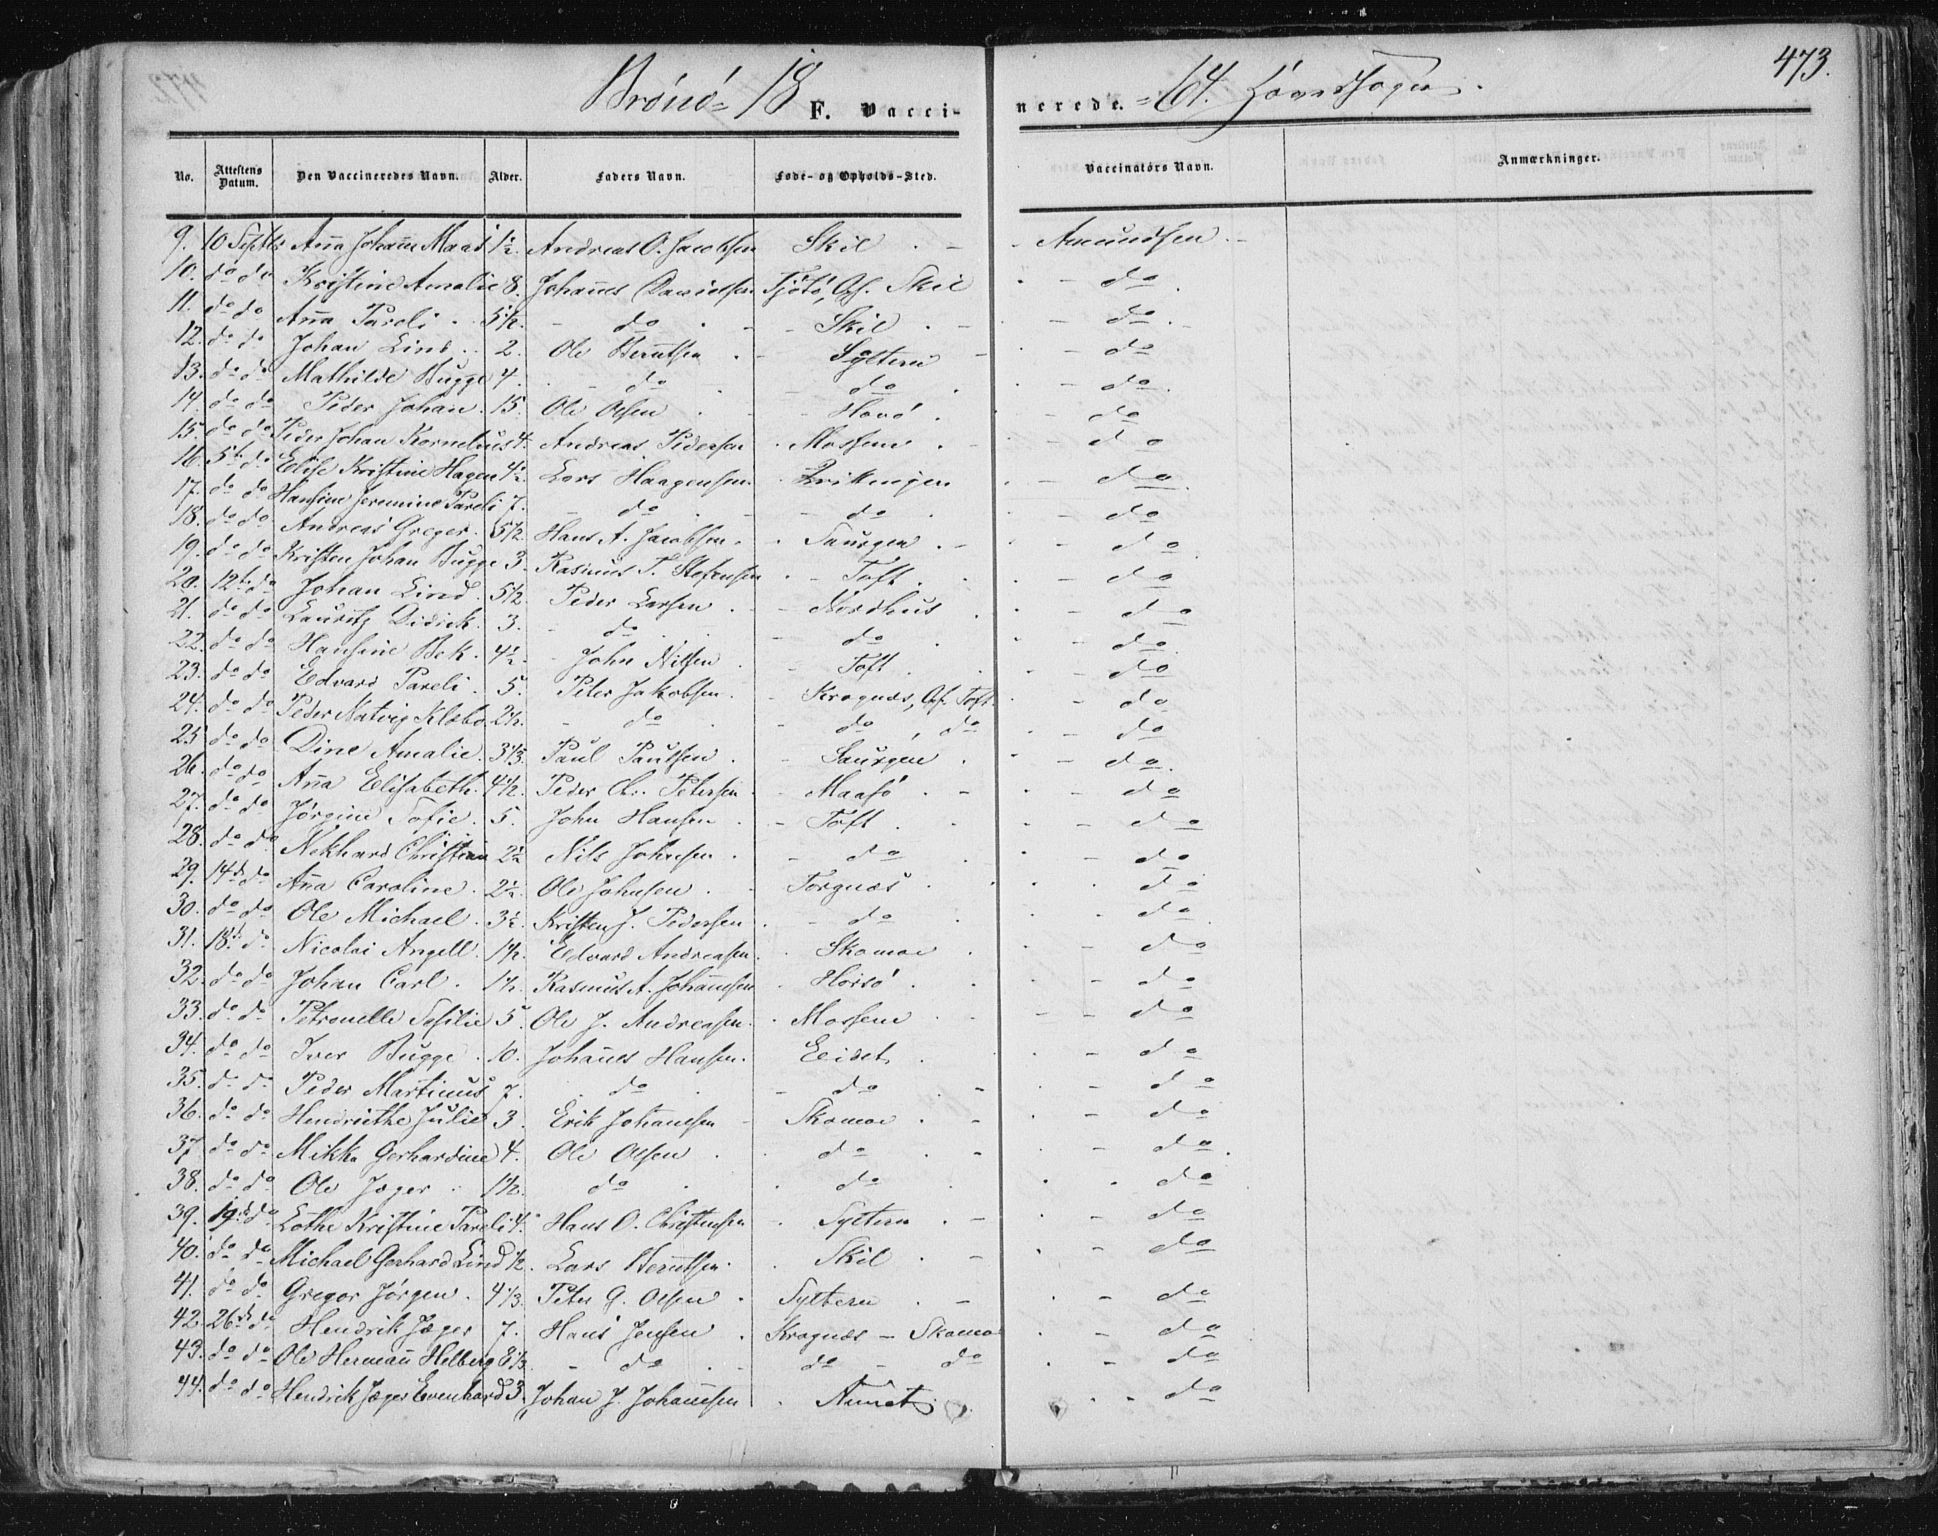 473.
Brönö- 18 64. Hovedsogn.
F. Vaccinerede.
No. Attestens Datum. Den Vaccineredes Navn. Alder. Faders Navn. Føde- og Opholds-Sted. Vaccinatørs Navn. Anmærkninger.
9. 10 Septbr Anna Johanne Maas 1½ Andreas O. Jacobsen Skil - Amundsen.
10. do do Kristine Amalie 8. Johannes Davidsen Tjötö, Skil - do
11. do do Anna Pareli 5½. do Skil - do
12. do do Johan Lind 2. Ole Berntsen Sylteru - do
13. do do Mathilde Bugge 4. do do - do
14. do do Peder Johan. 15. Ole Olsen Havö. - do
15. do do Peder Johan Kornelius 4. Andreas Pedersen Mosfem - do
16. 5te do Elise Kristine Hagen 4½. Lars Haagensen - do
17. do do Hansine Jeremine Pareli 7. do do - do
18. do do Andreas Greger. 5½ Hans A. Jacobsen. Saursgen - do
19. do do Kristen Johan Bugge 3. Rasmus T. Stefensen Toft. - do
20. 12te do Johan Lind. 5½ Peder Larsen Nordhus - do
21. do do Lauritz Didrik. 3. do do - do
22. do do Hansine Bek. 4½. John Nilsen Toft - do
23. do do Edvard Pareli. 5. Peter Jakobsen. Krognæs, Toft - do
24. do do Peder Natvig Klæbo. 2½. do do do - do
25 do do Dine Amalie. 3⅓. Paul Paulsen. Saursgen - do
26. do do Anna Elisabeth. 4½. Peder Chr. Petersen Maasö - do
27. do do Jörgine Sofie. 5. John Hansen Toft - do
28. do do Nekhard Christian 2½ Nils Johnsen. do - do
29. 14de do Anna Caroline. 2½. Ole Johnsen. Torgnæs - do
30. do do Ole Michael. 3½. Kristen J. Pedersen do - do
31. 18de do Nicolai Angell. 1½. Edvard Andreasen. Skomoe - do
32. do do Johan Carl. 1½. Rasmus A. Johannesen Horsö - do
33. do do Petronelle Sesilie 5. Ole J. Andreasen. Mosfem - do
34. do do Iver Bugge 10. Johannes Hansen. Eidet - do
35. do do Peder Martinus 7. do do - do
36. do do Hendriethe Julie 3. Erik Johannesen Skomoe - do
37 do do Mikka Gerhardine 4. Ole Olsen do - do
38. do do Ole Jæger 1½. do do - do
39. 19de do Lothe Kristine Pareli 4. Hans O. Christensen Sylteru - do
40. do do Michael Gerhard Lind ½. Lars Berntsen. Skil - do
41. do do Gregor Jörgen. 4⅓. Peter G. Olsen Sylteru - do
42. 26de do Hendrik Jæger 7. Hans Jensen Krognæs - Skomo - do
43. do do Ole Hermann Helberg 8⅓. do do - do - do
44. do do Hendrik Jæger Evenhard 3. Johan J. Johannesen - do